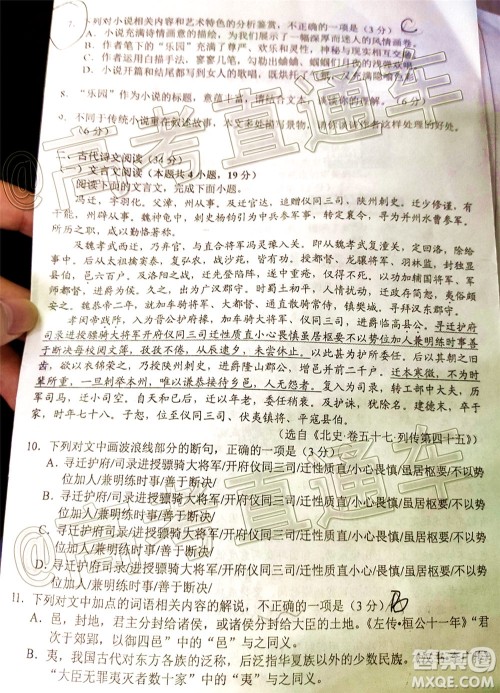 7. 下列对小说相关内容和艺术特色的分析鉴赏，不正确的一项是（3 分） C
A. 小说充满诗情画意的描绘，为我们展示出了一幅深厚而迷人的风情画卷。
B. 作者笔下的“乐园”充满了尊严、欢乐和灵性，神秘与现实交相
C. 作者运用白描手法，寥寥几笔，勾勒出
D. 小说题目和结尾都写到女人的歌唱，既烘托了气氛，又充满
8. “乐园”作为小说的标题，意蕴丰富，请结合文本，谈谈你的理解。（6 分）
9. 不同于传统小说重在叙述故事，本文处处描写景物，请你谈谈作者这样处理的好处。
（6 分）
二、古代诗文阅读（34 分）
（一）文言文阅读（本题共 4 小题，19 分）
阅读下面的文言文，完成下面小题。
冯迁，字羽化。父漳，州从事，及迁官达，追赠仪同三司、陕州刺史。迁少修谨，有
干能，州辟从事。魏神龟中，刺史杨钧引为中兵参军事，寻为并州水曹参军。
所历之职，咸以勤恪著称。
及魏孝武西迁，乃弃官，与直合将军冯灵豫入关。即从魏孝武复潼关，定回洛，
后从太祖擒窦泰，复弘农，战沙苑，皆有功。授都督、龙骧将军、羽林监，封独显县
伯，邑六百户。及洛阳之战，迁先登陷阵，遂中重疮，仅得不死。以功加辅国将军、军
师都督，进爵为侯。久之，出为广汉郡守。时蜀土初平，人情扰动，迁政存简恕，夷俗颇
安之。魏恭帝二年，就加车骑将军、大都督、通直散骑常侍，镇樊城，寻拜汉东郡守。
孝闵帝践阼，入为晋公护府掾，加骠骑将军、仪同三司，进爵临高县公。寻迁护府
司录进授骠骑大将军开府仪同三司迁性质直小心畏慎虽居枢要不以势位加人兼明练时事
善于断决每校阅文簿，孜孜不倦，从辰逮夕，未尝休止。以此甚为护所委任。后以其
朝之旧齿，欲以衣锦荣之，乃授陕州刺史，进爵隆山郡公，增邑并前二千户。迁本寒微，不为时
辈所重，一旦刺举本州，唯以谦恭接待乡邑，人无怨者。复入为司录，转工部中大夫，历
军司马，迁小司空。自天和后，迁以年老，委任稍衰于前。及护诛，犹除名。建德末，卒于
家，时年七十八。子恕，位仪同三司、伏夷镇将、平寇县伯。
（选自《北史·卷五十七·列传第四十五》）
10. 下列对文中画波浪线部分的断句，正确的一项是（3 分）
A. 寻迁护府/司录进授骠骑大将军/开府仪同三司/迁性质直/小心畏慎/虽居枢要/不以势
位加人/兼明练时事/善于断决/
B. 寻迁护府司录/进授骠骑大将军/开府仪同三司/迁性质直/小心畏慎/虽居枢要/不以势
位加人/兼明练/时事善于断决/
C. 寻迁护府司录/进授骠骑大将军/开府仪同三司/迁性质直/小心畏慎/虽居枢要/不以势
位加人/兼明练时事/善于断决/
D. 寻迁护府/司录进授骠骑大将军/开府仪同三司/迁性质直/小心畏慎/虽居枢要/不以势
位加人/兼明练/时事善于断决/
11. 下列对文中加点的词语相关内容的解说，不正确的一项是（3 分） B
A. 邑，封地，君主分封给诸侯，或者诸侯分封给大臣的土地。《左传·桓公十一年》“君
次于郊郢，以御四邑”中的“邑”与之同义。
B. 夷，我国古代对东方各族的泛称，后泛指华夏族以外的少数民族。
“大臣无罪夷灭者数十家”中的“夷”与之同义。
高考直通车